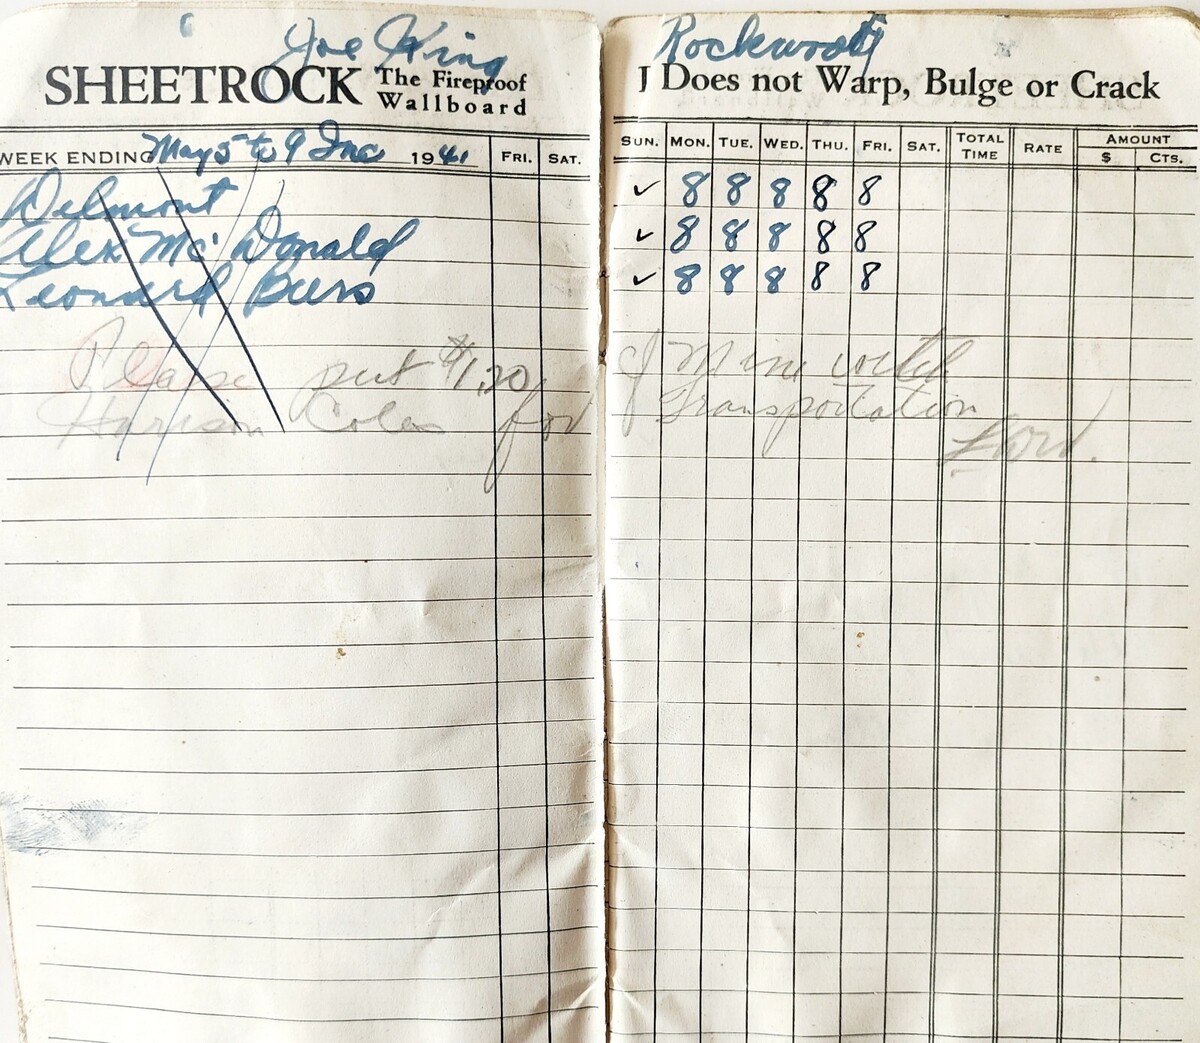 Joe King
SHEETROCK The Fireproof Wallboard
WEEK ENDING May 5 to 9 Inc 1941 FRI. SAT.
Delmont
Alex Mc Donald
Leonard
Please put $1.20
Harrison Coles for
Rockwood
Does not Warp, Bulge or Crack
SUN. MON. TUE. WED. THU. FRI. SAT. TOTAL TIME RATE AMOUNT $ CTS.
✓ 8 8 8 8 8
✓ 8 8 8 8 8
✓ 8 8 8 8 8
Mine with
Transportation